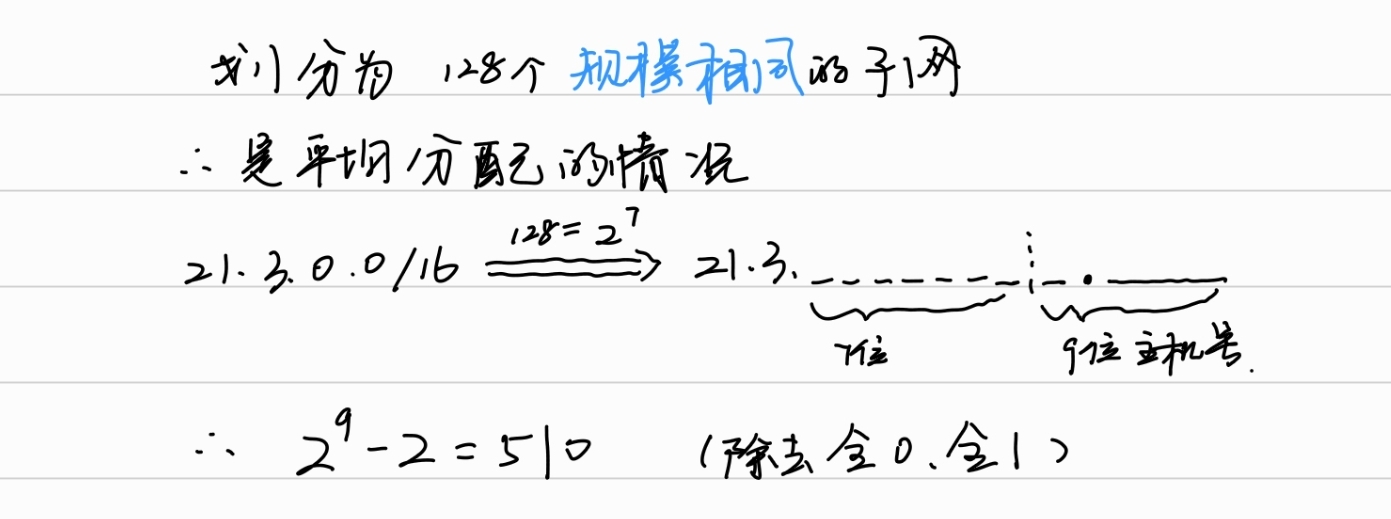 划分为 128个 规模相同的子网
∴ 是平均分配的情况
128=2^7
21.3.0.0/16 ⟹ 21.3. _ _ _ _ _ _ _ ⋮ _ . ____
7位 9位主机号.
∴ 2^9-2=510 (除去全0、全1)